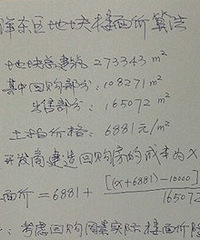 东区地块楼面价算法
地块总建筑 273343 m²
其中回购部分: 108271 m²
出售部分: 165072 m²
土地价格: 6881元/m²
开发商建造回购房的成本为X
面价=6881+ [(x+6881)-10000] 165072
: 考虑回购因素实际楼面价